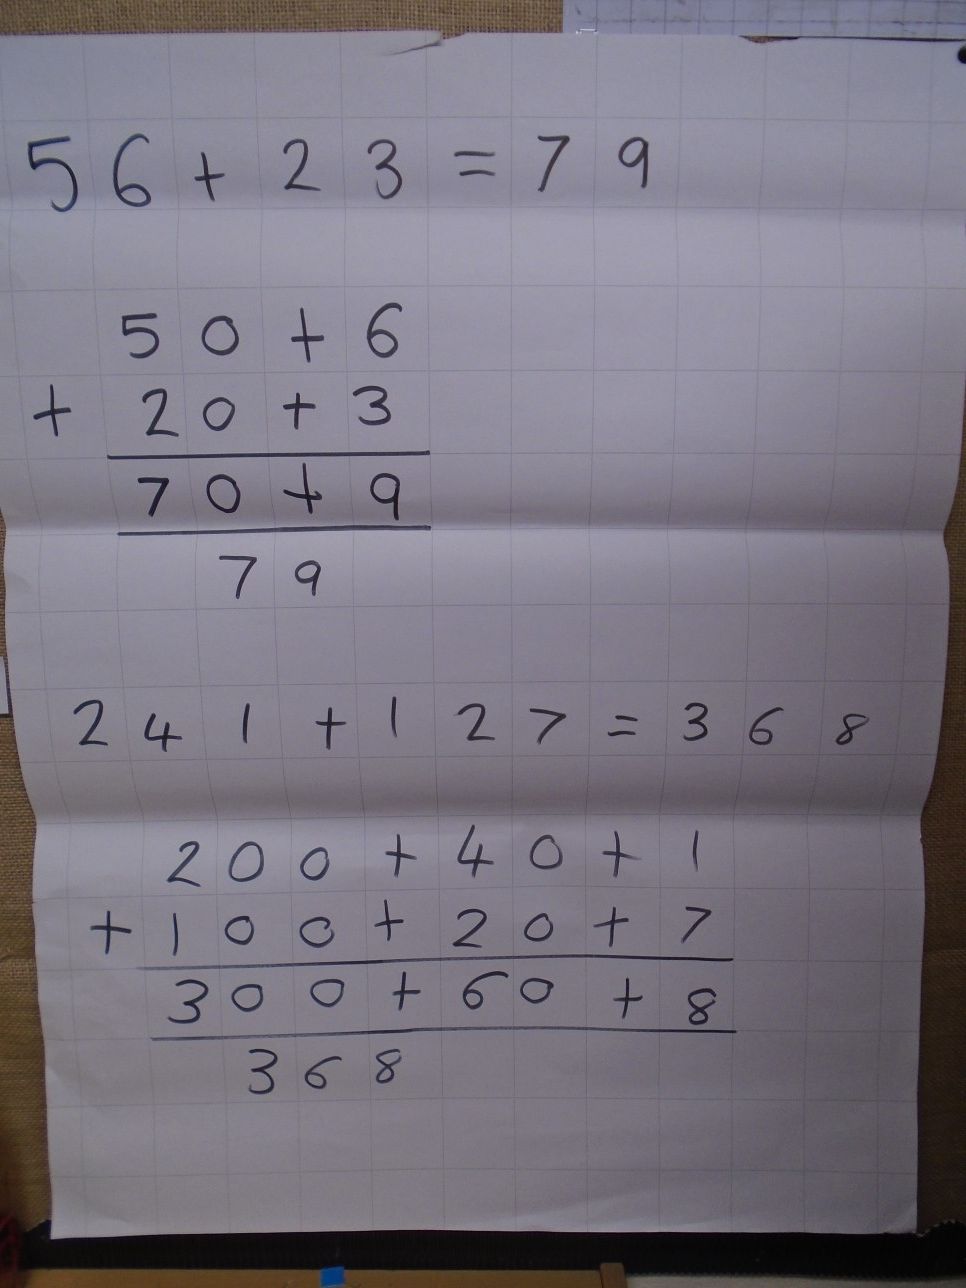 56 + 23 = 79
50 + 6
+ 20 + 3
70 + 9
79
241 + 127 = 368
200 + 40 + 1
+ 100 + 20 + 7
300 + 60 + 8
368